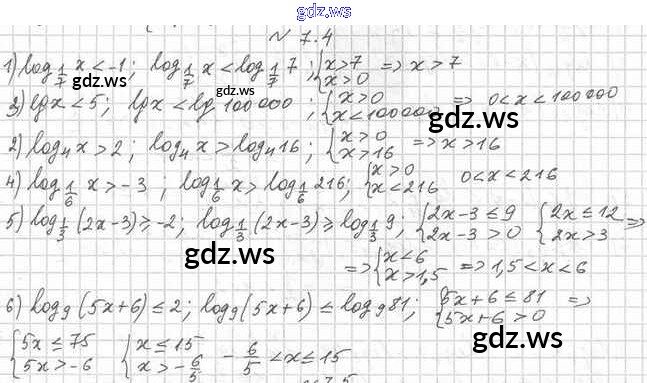 gdz.ws
N 7.4
1) log_{1/7} x < -1; log_{1/7} x < log_{1/7} 7; { x>7 x>0 => x>7
gdz.ws gdz.ws
3) lg x < 5; lg x < lg 100000; { x>0 x<100000 => 0<x<100000
gdz.ws
2) log_4 x > 2; log_4 x > log_4 16; { x>0 x>16 => x>16
4) log_{1/6} x > -3; log_{1/6} x > log_{1/6} 216; { x>0 x<216 0<x<216
5) log_{1/3} (2x-3) ≥ -2; log_{1/3} (2x-3) ≥ log_{1/3} 9; { 2x-3 ≤ 9 2x-3 > 0 { 2x ≤ 12 2x > 3 =>
gdz.ws
=> { x<6 x>1,5 => 1,5<x<6
gdz.ws
6) log_9 (5x+6) ≤ 2; log_9 (5x+6) ≤ log_9 81; { 5x+6 ≤ 81 5x+6 > 0 =>
{ 5x ≤ 75 5x > -6 { x ≤ 15 x > -6/5 -6/5 < x ≤ 15
gdz.ws gdz.ws